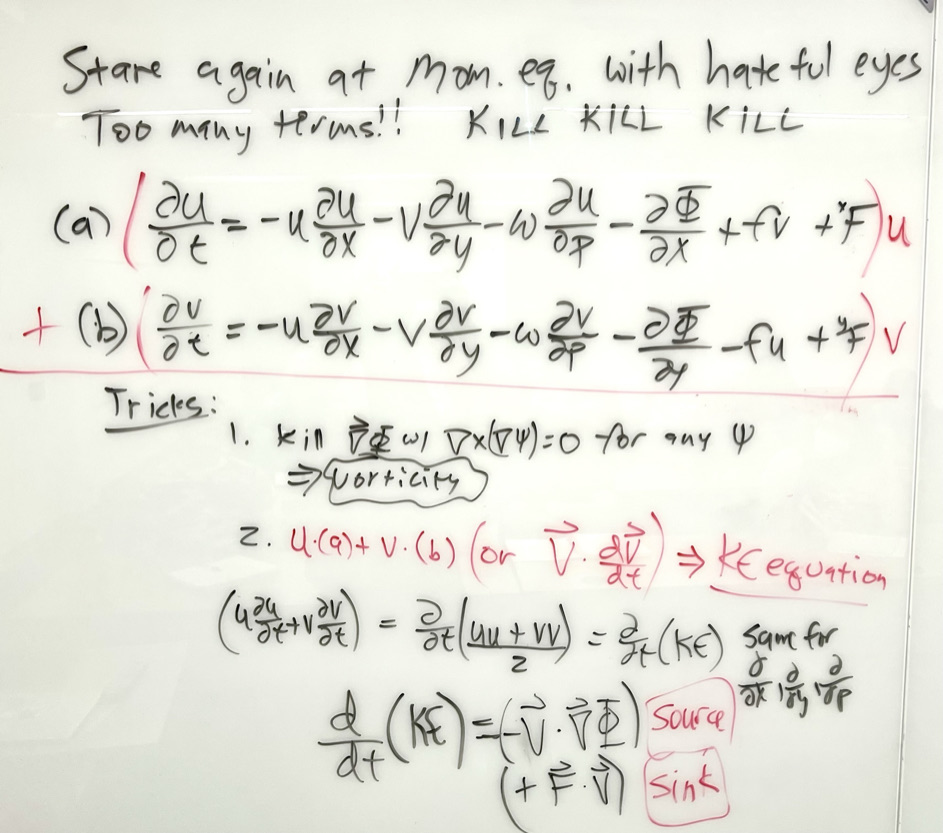 Stare again at Mom. eq. with hateful eyes
Too many terms!! KILL KILL KILL
(a) (∂u/∂t = -u ∂u/∂x - v ∂u/∂y - ω ∂u/∂p - ∂Φ/∂x + fv + ˣF) u
+ (b) (∂v/∂t = -u ∂v/∂x - v ∂v/∂y - ω ∂v/∂p - ∂Φ/∂y - fu + ʸF) v
Tricks:
1. Kill ∇⃗Φ w/ ∇×(∇ψ)=0 for any ψ
⇒ vorticity
2. u·(a) + v·(b) (or V⃗ · dV⃗/dt) ⇒ KE equation
(u ∂u/∂t + v ∂v/∂t) = ∂/∂t (uu + vv)/2 = ∂/∂t (KE) same for
∂/∂x, ∂/∂y, ∂/∂p
d/dt (KE) = (-V⃗ · ∇⃗Φ) source
(+ F⃗ · V⃗) sink